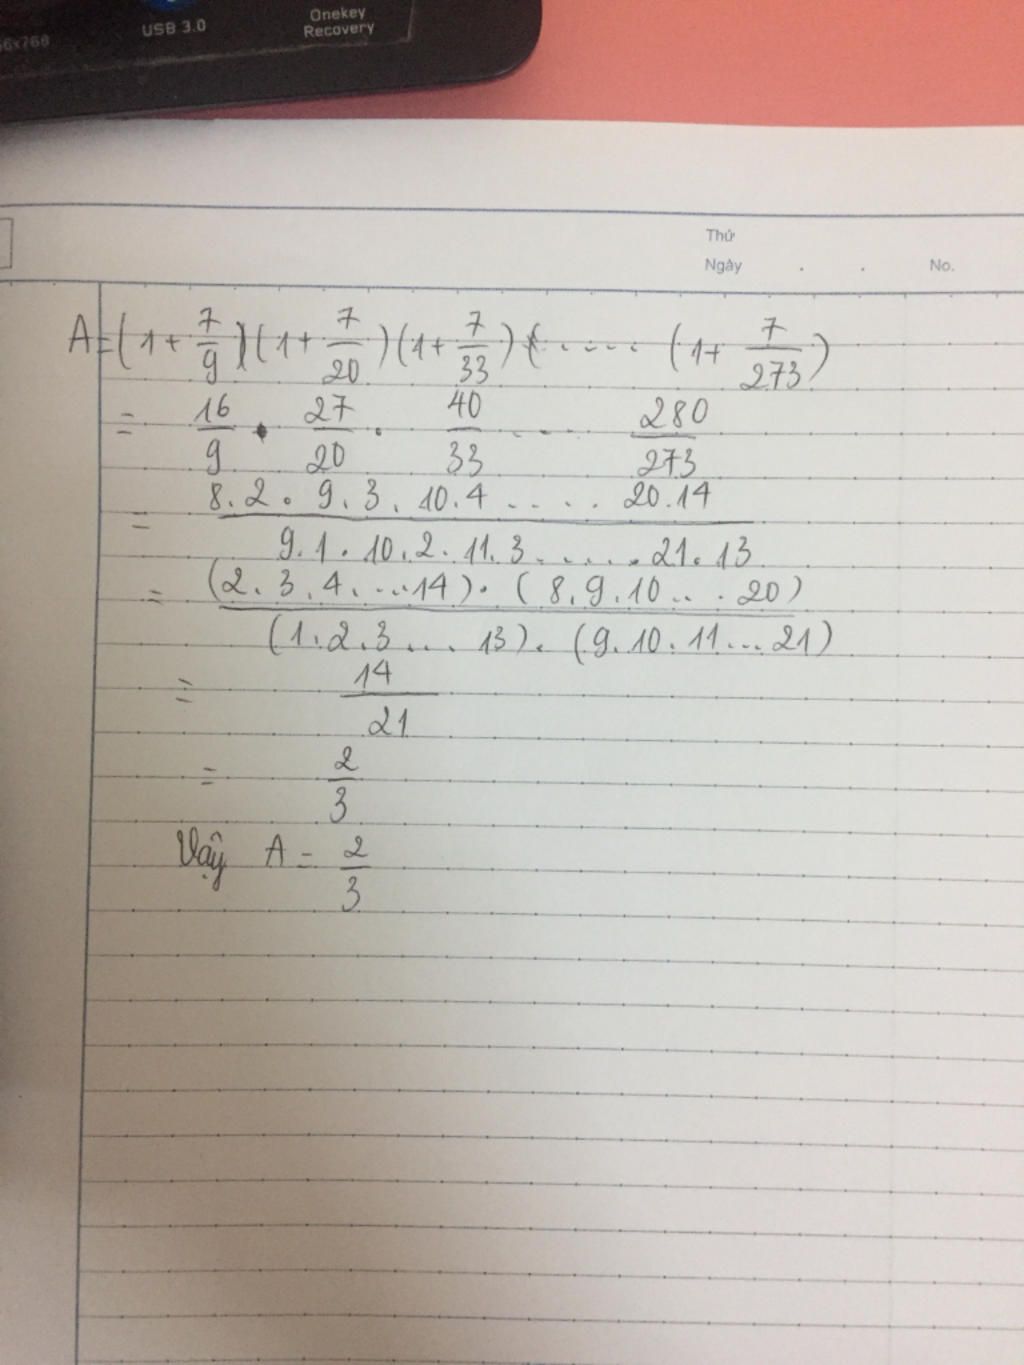 66x768 USB 3.0 Onekey
Recovery
Thứ
Ngày . . No.
A=(1+7/9)(1+7/20)(1+7/33)(.....(1+7/273)
= 16/9 . 27/20 . 40/33 .... 280/273
= 8.2.9.3.10.4.....20.14 / 9.1.10.2.11.3......21.13
= (2.3.4....14).(8.9.10...20) / (1.2.3...13).(9.10.11...21)
= 14/21
= 2/3
Vậy A = 2/3